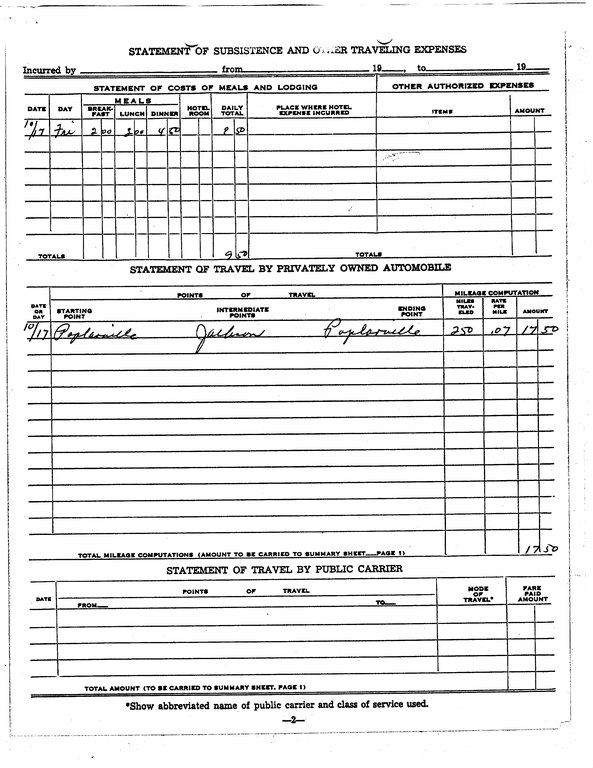 STATEMENT OF SUBSISTENCE AND OTHER TRAVELING EXPENSES
Incurred by from 19 , to 19
STATEMENT OF COSTS OF MEALS AND LODGING OTHER AUTHORIZED EXPENSES
MEALS
DATE DAY BREAK-FAST LUNCH DINNER HOTEL ROOM DAILY TOTAL PLACE WHERE HOTEL EXPENSE INCURRED ITEMS AMOUNT
10/17 Fri 2 00 4 50 50
TOTALS 9 50 TOTALS
STATEMENT OF TRAVEL BY PRIVATELY OWNED AUTOMOBILE
POINTS OF TRAVEL MILEAGE COMPUTATION
DATE OR DAY STARTING POINT INTERMEDIATE POINTS ENDING POINT MILES TRAV-ELED RATE PER MILE AMOUNT
10/17 Poplarville Jackson Poplarville 250 .07 17 50
TOTAL MILEAGE COMPUTATIONS (AMOUNT TO BE CARRIED TO SUMMARY SHEET—PAGE 1) 17 50
STATEMENT OF TRAVEL BY PUBLIC CARRIER
DATE POINTS OF TRAVEL MODE OF TRAVEL* FARE PAID AMOUNT
FROM— TO—
TOTAL AMOUNT (TO BE CARRIED TO SUMMARY SHEET, PAGE 1)
*Show abbreviated name of public carrier and class of service used.
—2—